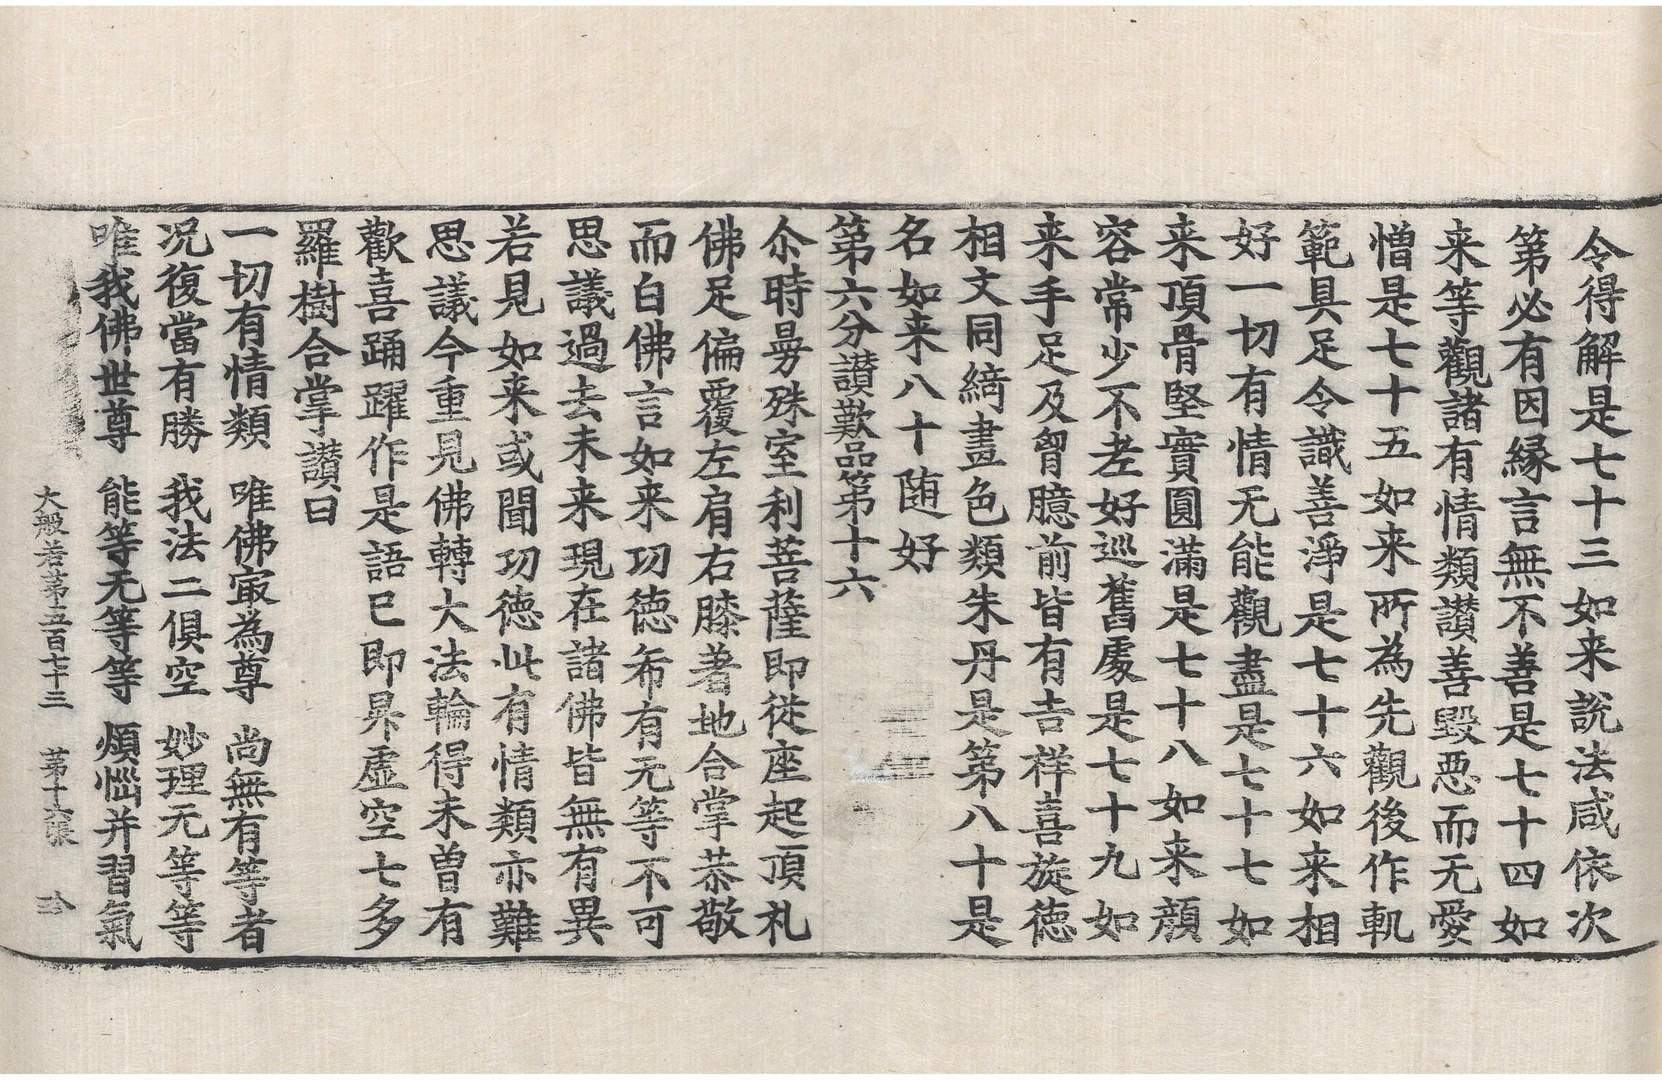 令得解是七十三如来說法咸依次
第必有因縁言無不善是七十四如
来等觀諸有情類讃善毀惡而无愛
憎是七十五如来所為先觀後作軌
範具足令識善淨是七十六如来相
好一切有情无能觀盡是七十七如
来頂骨堅實圓滿是七十八如来顔
容常少不老好巡舊處是七十九如
来手足及胷臆前皆有吉祥喜旋徳
相文同綺畫色類朱丹是第八十是
名如来八十随好
第六分讃歎品第十六
尒時曼殊室利菩薩即從座起頂礼
佛足偏覆左肩右膝著地合掌恭敬
而白佛言如来功徳希有无等不可
思議過去未来現在諸佛皆無有異
若見如来或聞功徳此有情類亦難
思議今重見佛轉大法輪得未曽有
歡喜踊躍作是語已即昇虛空七多
羅樹合掌讃曰
一切有情類 唯佛㝡為尊 尚無有等者
况復當有勝 我法二俱空 妙理无等等
唯我佛世尊 能等无等等 煩惱并習氣
大般若第五百七十三 第十六張 㱃